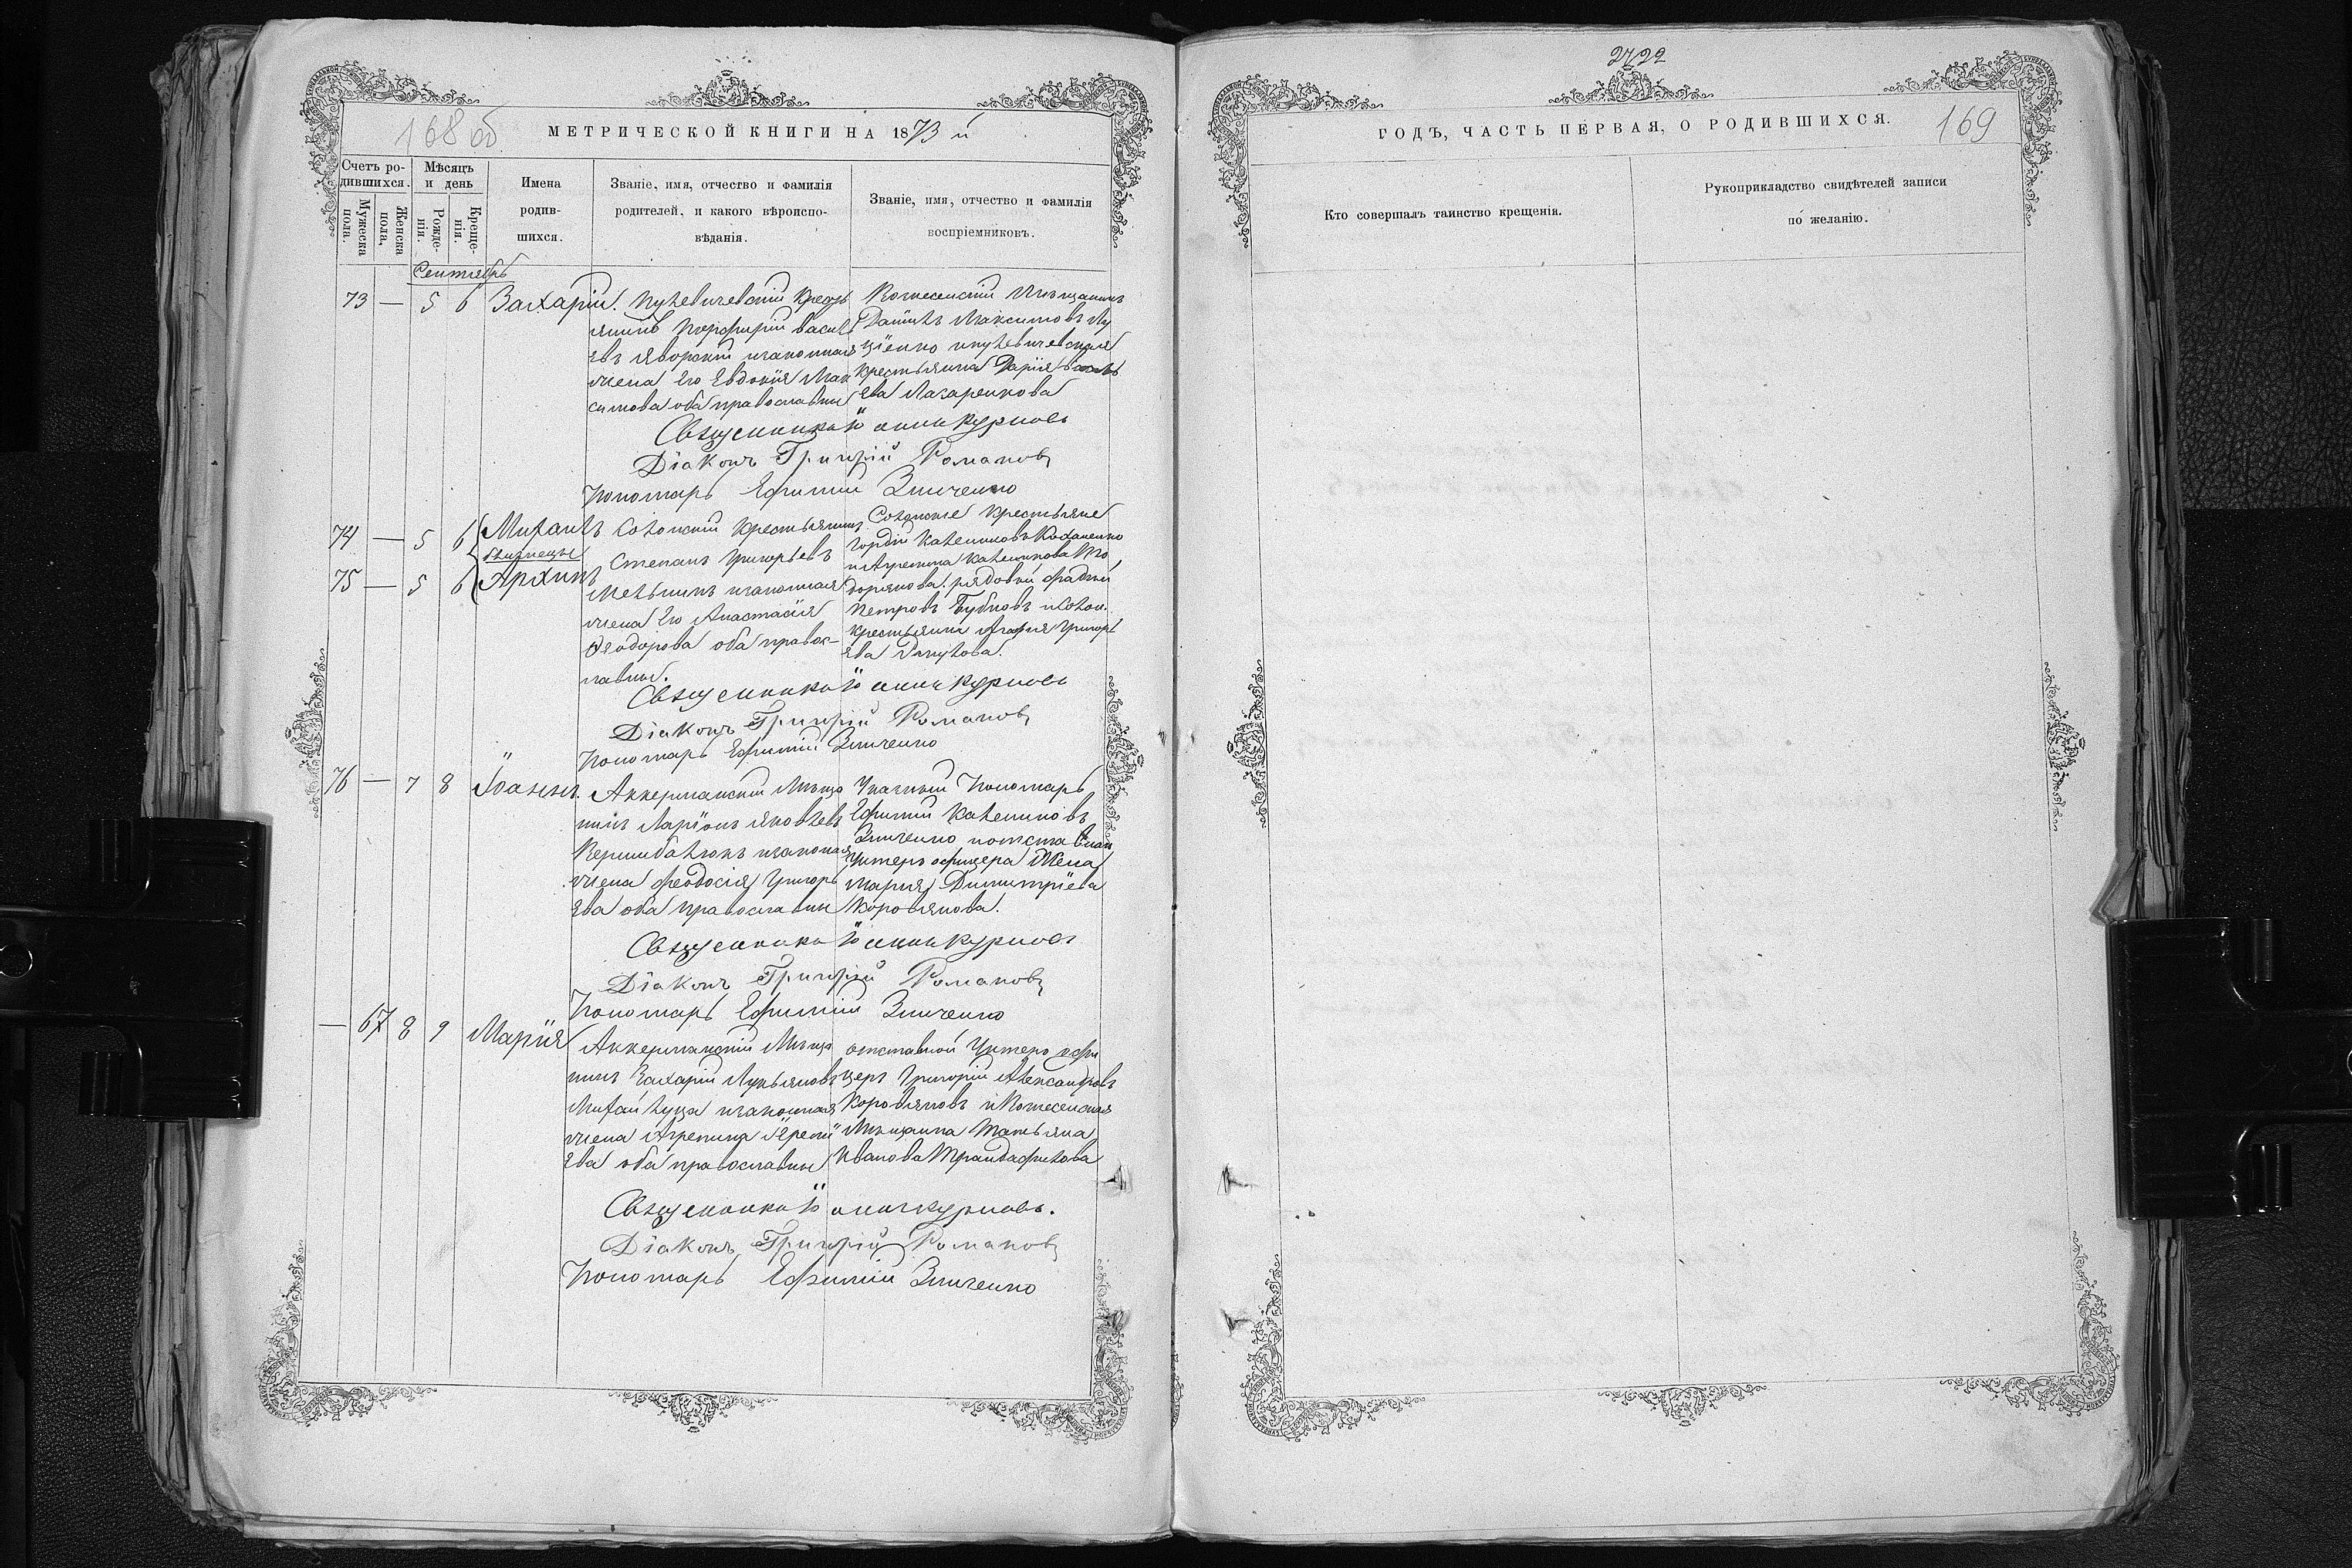 168 об
МЕТРИЧЕСКОЙ КНИГИ НА 1873 й
Счетъ ро-
дившихся.
Мужеска
пола.
Женска
пола,
Мѣсяцъ
и день
Рожде-
нія.
Креще-
нія.
Имена
родив-
шихся.
Званіе, имя, отчество и фамилія
родителей, и какого вѣроиспо-
вѣданія.
Званіе, имя, отчество и фамилія
воспріемниковъ.
Сентябрь
73 — 5 6 Захарій.
Порфирій Василь
евъ Яворскій изаконная
жена Его Евдокія Мак
симова оба православны
Мѣщанинъ
Даніилъ Максимовъ
крестьянка Дарія Василь
ева Лазаренкова
Священникъ Іоаннъ Курновъ
Діаконъ Григорій Романовъ
Пономарь Ефимій Зинченко
74 — 5 6 Михаилъ
близнецы
75 — 5 6 Архипъ
крестьянинъ
Степанъ Григорьевъ
Мельникъ изаконная
жена Его Анастасія
Ѳеодорова оба правос-
лавны.
крестьяне
Гордій Калениковъ
и Агрепина Каленикова То
дорякова. рядовый Фадѣй
Петровъ Бубновъ
крестьянка Агафія Григорь
ева
Священникъ Іоаннъ Курновъ
Діаконъ Григорій Романовъ
Пономарь Ефимій Зинченко
76 — 7 8 Іоаннъ.
Аккерманскій Мѣща
нинъ Ларіонъ Яковлевъ
изаконная
жена Феодосія Григорь
ева оба православны
Указный Пономарь
Ефимій Калениковъ
Зинченко
Унтеръ офицера Жена
Марія Димитріева
Коровякова.
Священникъ Іоаннъ Курновъ
Діаконъ Григорій Романовъ
Пономарь Ефимій Зинченко
— 67 8 9 Марія
Аккерманскій Мѣща
нинъ Захарій Лукьяновъ
Михайлуца изаконная
жена Агрепина Ереміи
ева оба православны
отставной Унтеръ офи
церъ Григорій Александровъ
Коровяковъ
Мѣщанка Татьяна
Иванова Трандафилова
Священникъ Іоаннъ Курновъ.
Діаконъ Григорій Романовъ
Пономарь Ефимій Зинченко
2722
ГОДЪ, ЧАСТЬ ПЕРВАЯ, О РОДИВШИХСЯ.
169
Кто совершалъ таинство крещенія.
Рукоприкладство свидѣтелей записи
по желанію.